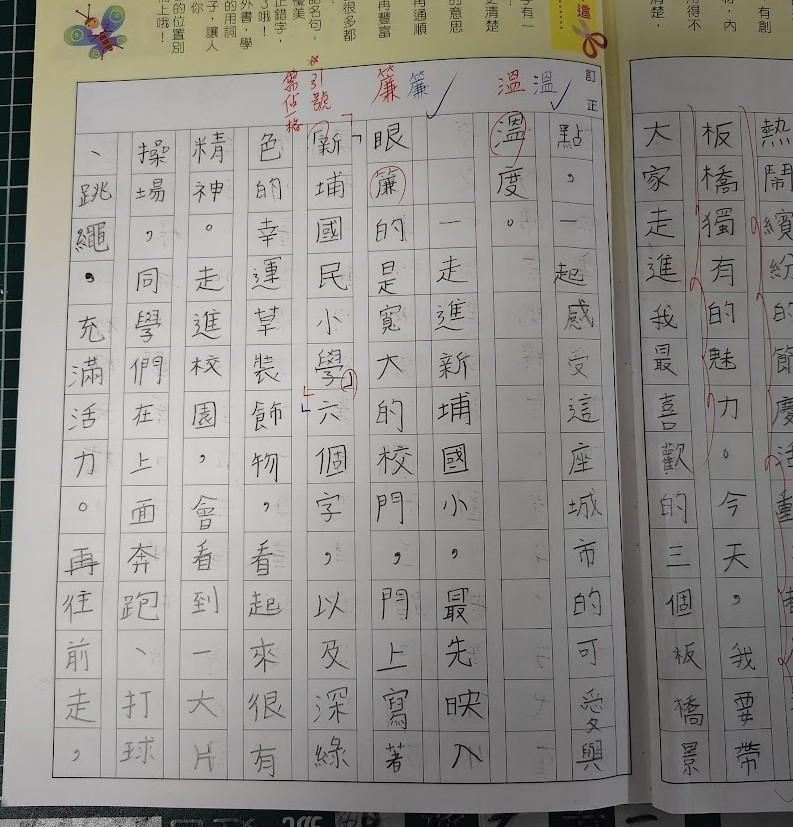 有創
物，內
用得不
清楚，
熱鬧繽紛的節慶活動
板橋獨有的魅力。今天，我要帶
大家走進我最喜歡的三個板橋景
這
字有一
更清楚
的意思
再通順
再豐富
很多都
語名句，
優美
正錯字，
了哦！
外書，學
的用詞
子，讓人
你
的位置別
上哦！
訂正
溫 溫
簾 簾
*引號
需佔一格
點，一起感受這座城市的可愛與
溫度。
一走進新埔國小，最先映入
眼簾的是寬大的校門，門上寫著
「新埔國民小學」六個字，以及深綠
色的幸運草裝飾物，看起來很有
精神。走進校園，會看到一大片
操場，同學們在上面奔跑、打球
、跳繩，充滿活力。再往前走，